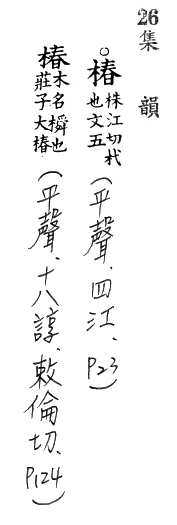 26集韻
○椿株江切杙也文五(平聲、四江、P23)
椿木名橓也莊子大椿(平聲、十八諄、敕倫切、P124)